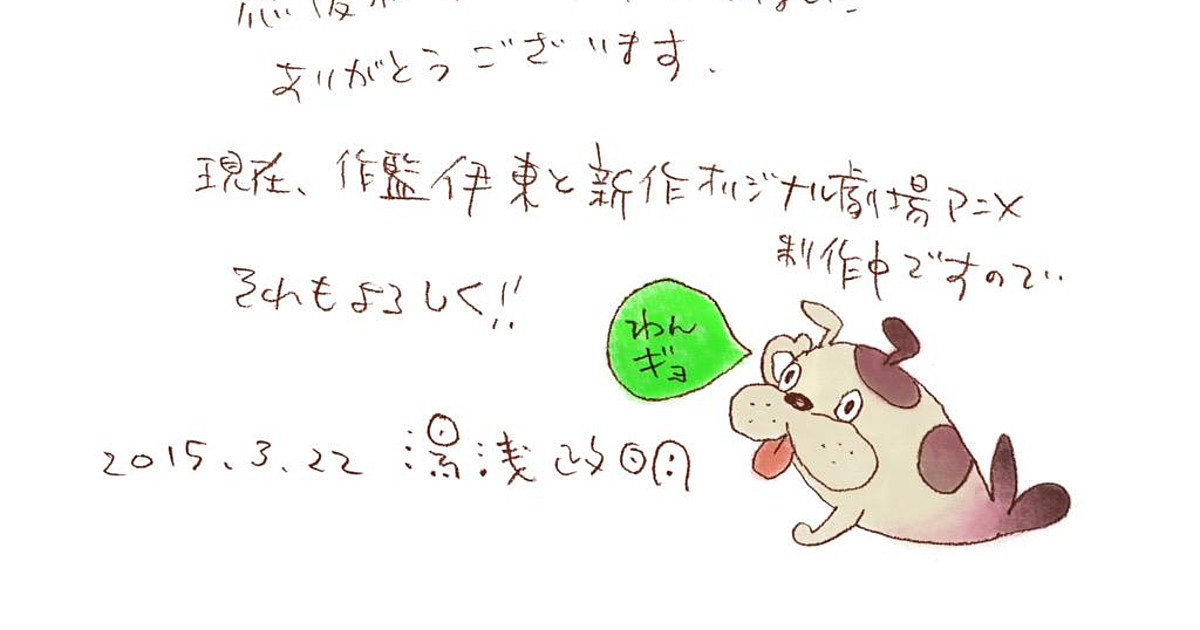 ありがとうございます.
現在、作監伊東と新作オリジナル劇場アニメ
制作中ですので..
それもよろしく!!
わん
ギョ
2015.3.22 湯浅政明